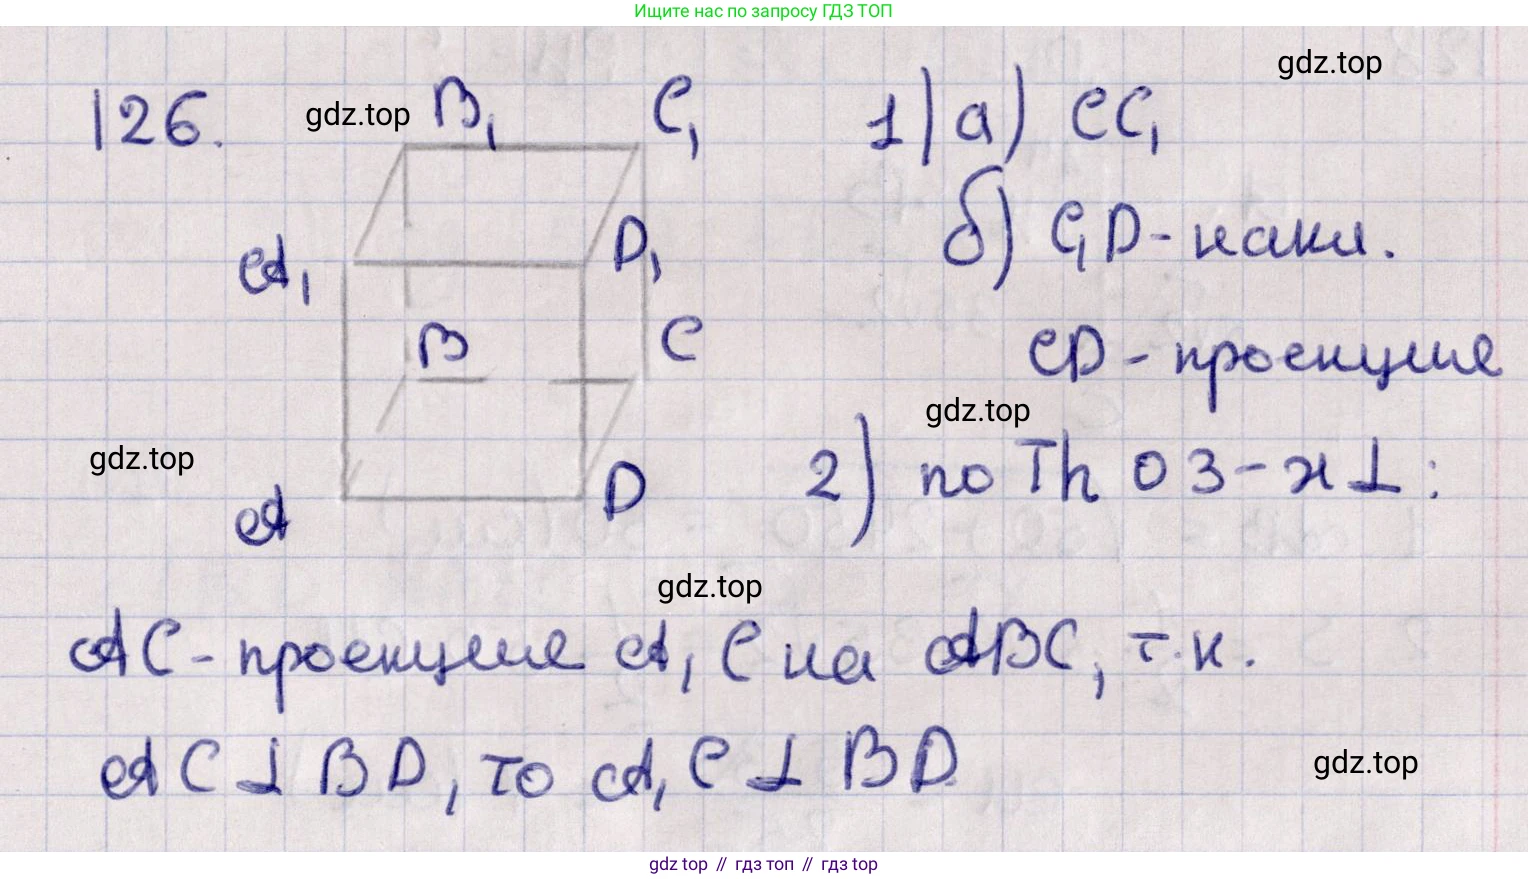 Ищите нас по запросу ГДЗ ТОП
gdz.top
126.
gdz.top
B₁
C₁
1) а) CC₁
б) C₁D - накл.
A₁
D₁
B
C
CD - проекция
gdz.top
gdz.top
A
D
2) по Th о 3-х ⊥ :
gdz.top
AC - проекция A₁C на ABC, т.к.
AC ⊥ BD, то A₁C ⊥ BD
gdz.top
gdz top // гдз топ // гдз top